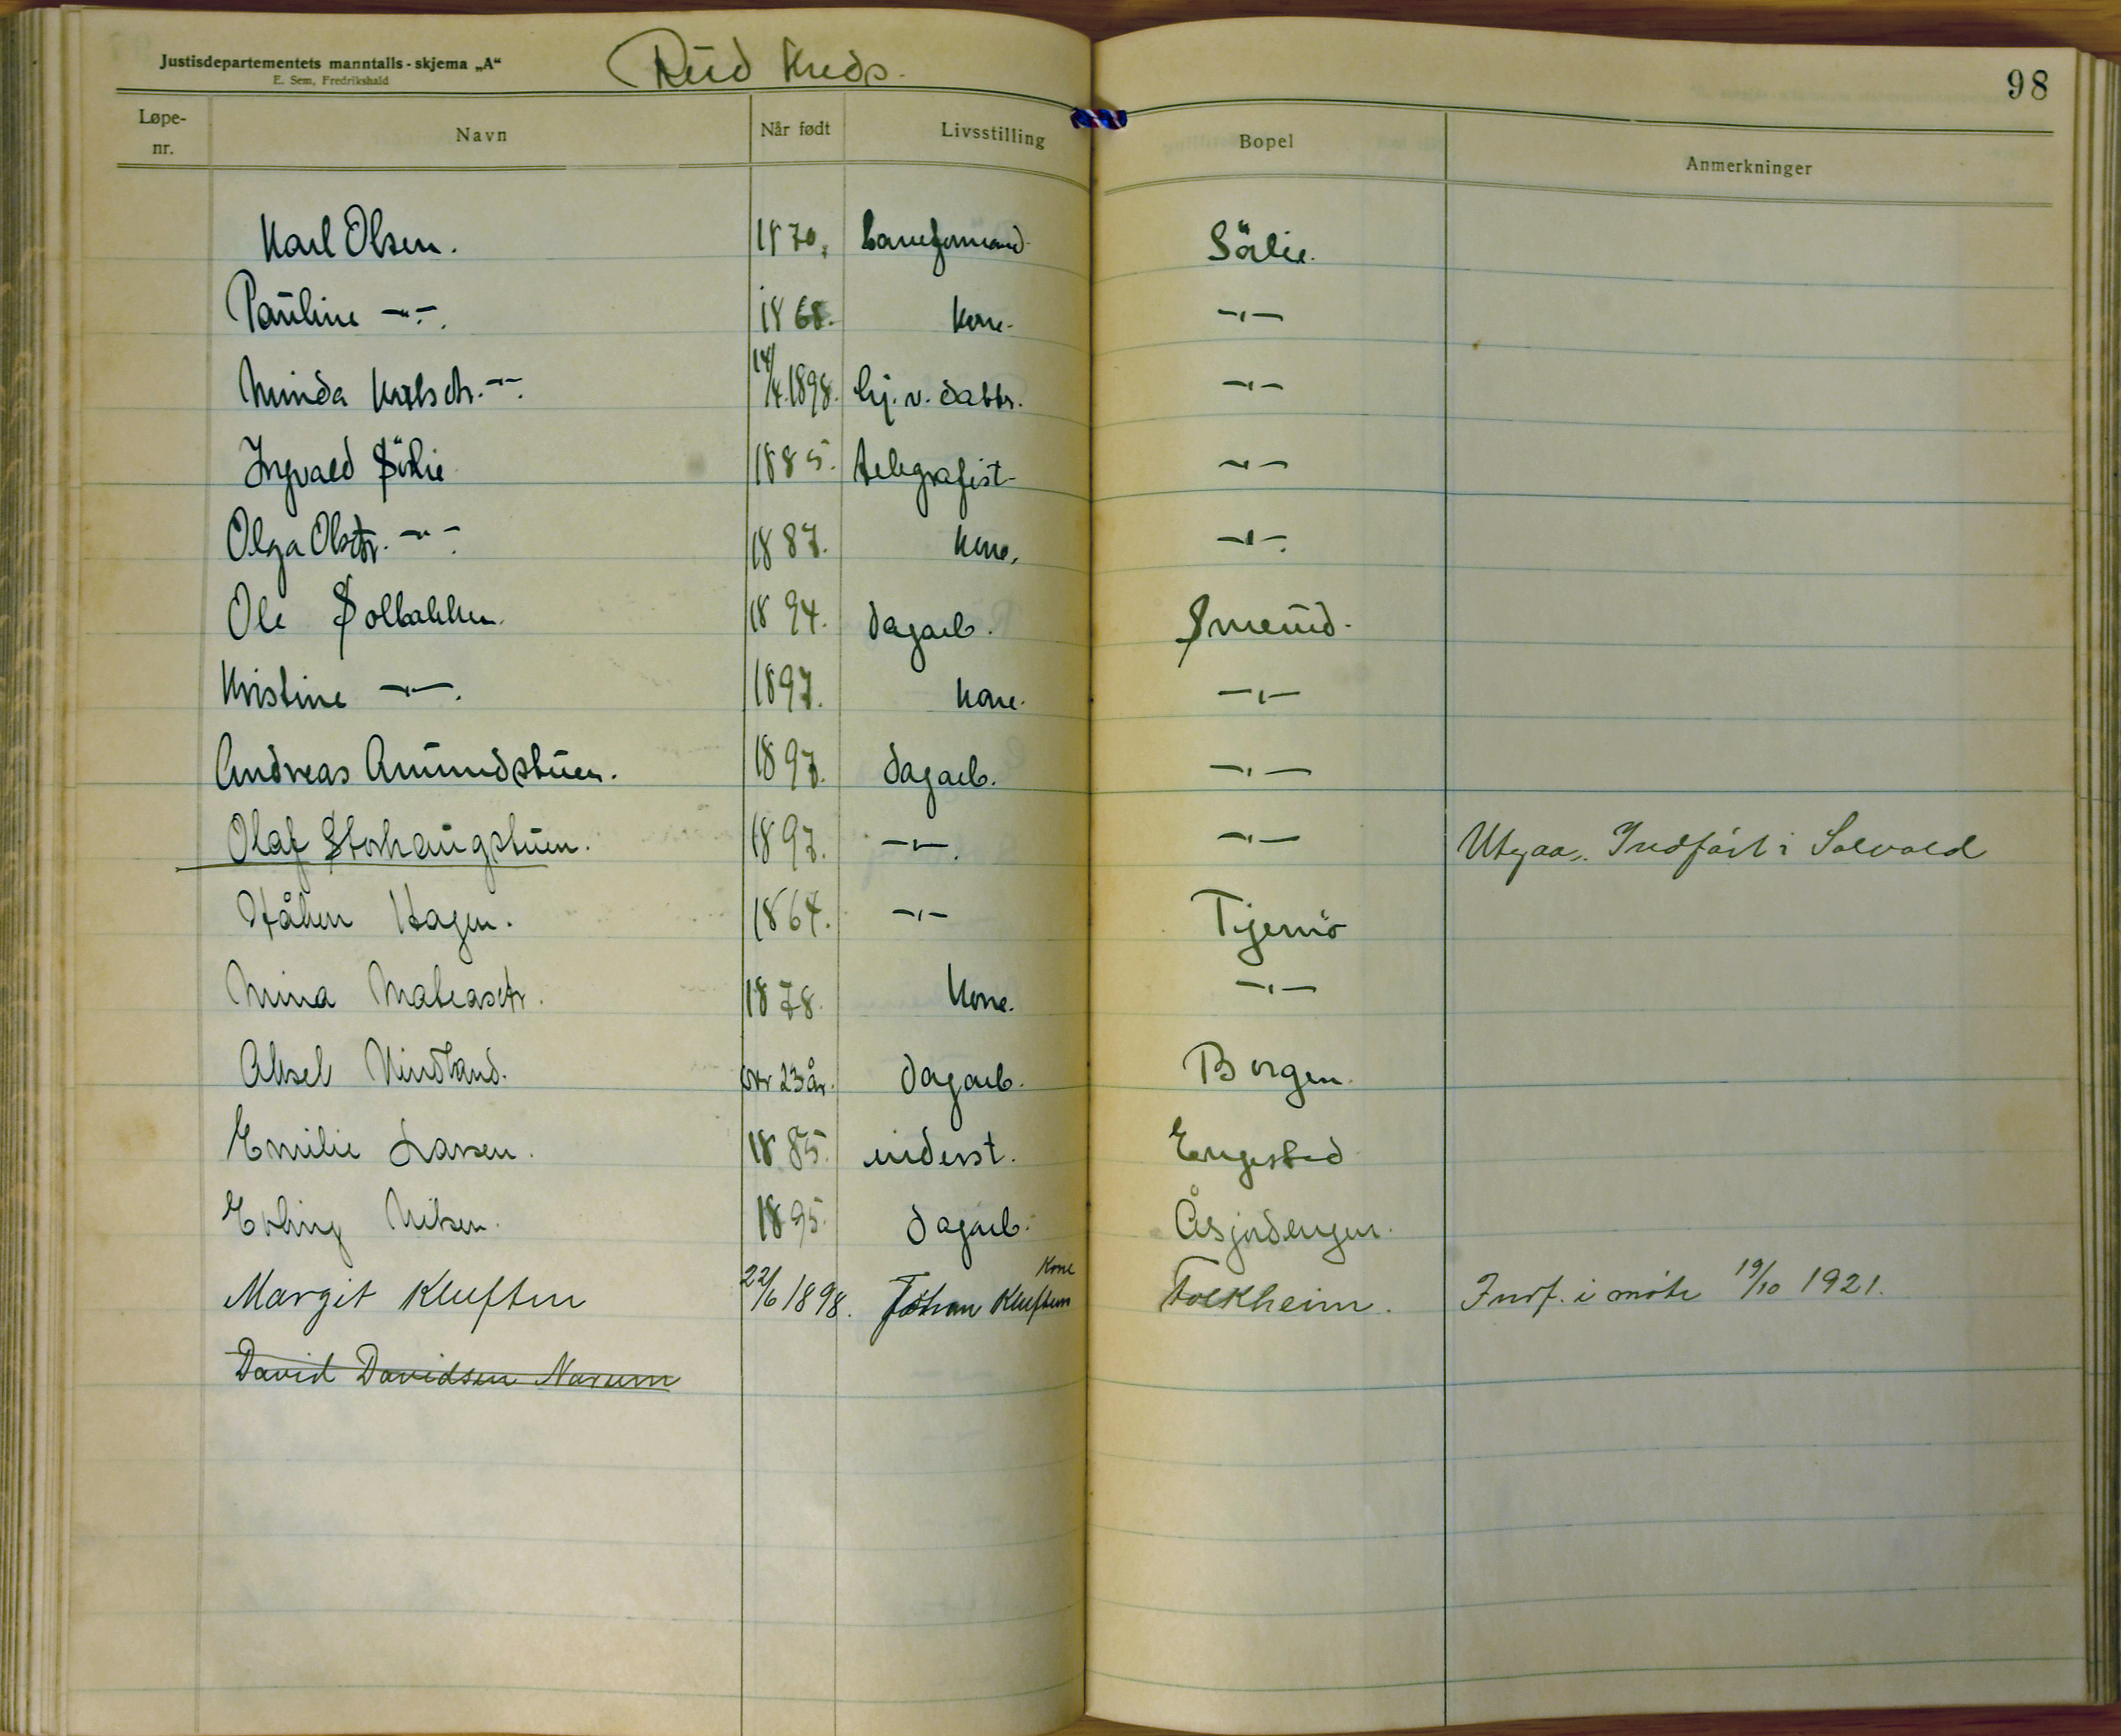 Justisdepartementets manntalls-skjema „A“
E. Sem, Fredrikshald
Rud Kreds.
98
Løpe-nr. Navn Når født Livsstilling Bopel Anmerkninger
Karl Olsen. 1870. baneformand. Sölie.
Pauline —"—. 1868. kone. —"—
Minda Karlsdtr. —"—. 14/4.1898. hj.v. dattr. —"—
Ingvald Sölie 1885. telegrafist —"—
Olga Olsdtr. —"— 1887. kone. —"—.
Ole Solbakken. 1894. dagarb. Smerud.
Kristine —"—. 1897. kone. —"—
Andreas Amundstuen. 1897. dagarb. —"—
Olaf Storhaugstuen. 1897. —"—. —"— Utgaar. Indfört i Solvold
Håken Hagen. 1864. —"— Tjernö
Mina Mateasdtr. 1878. kone. —"—
Aksel Kindland. ovr 23 år. dagarb. Borgen.
Emilie Larsen. 1885. inderst. Engestad
Erling Nilsen. 1895. dagarb. Åsjordengen.
Margit Kluften 22/6 1898. Johan Kluftens Kone Folkheim. Indf. i möte 19/10 1921.
David Davidsen Narum